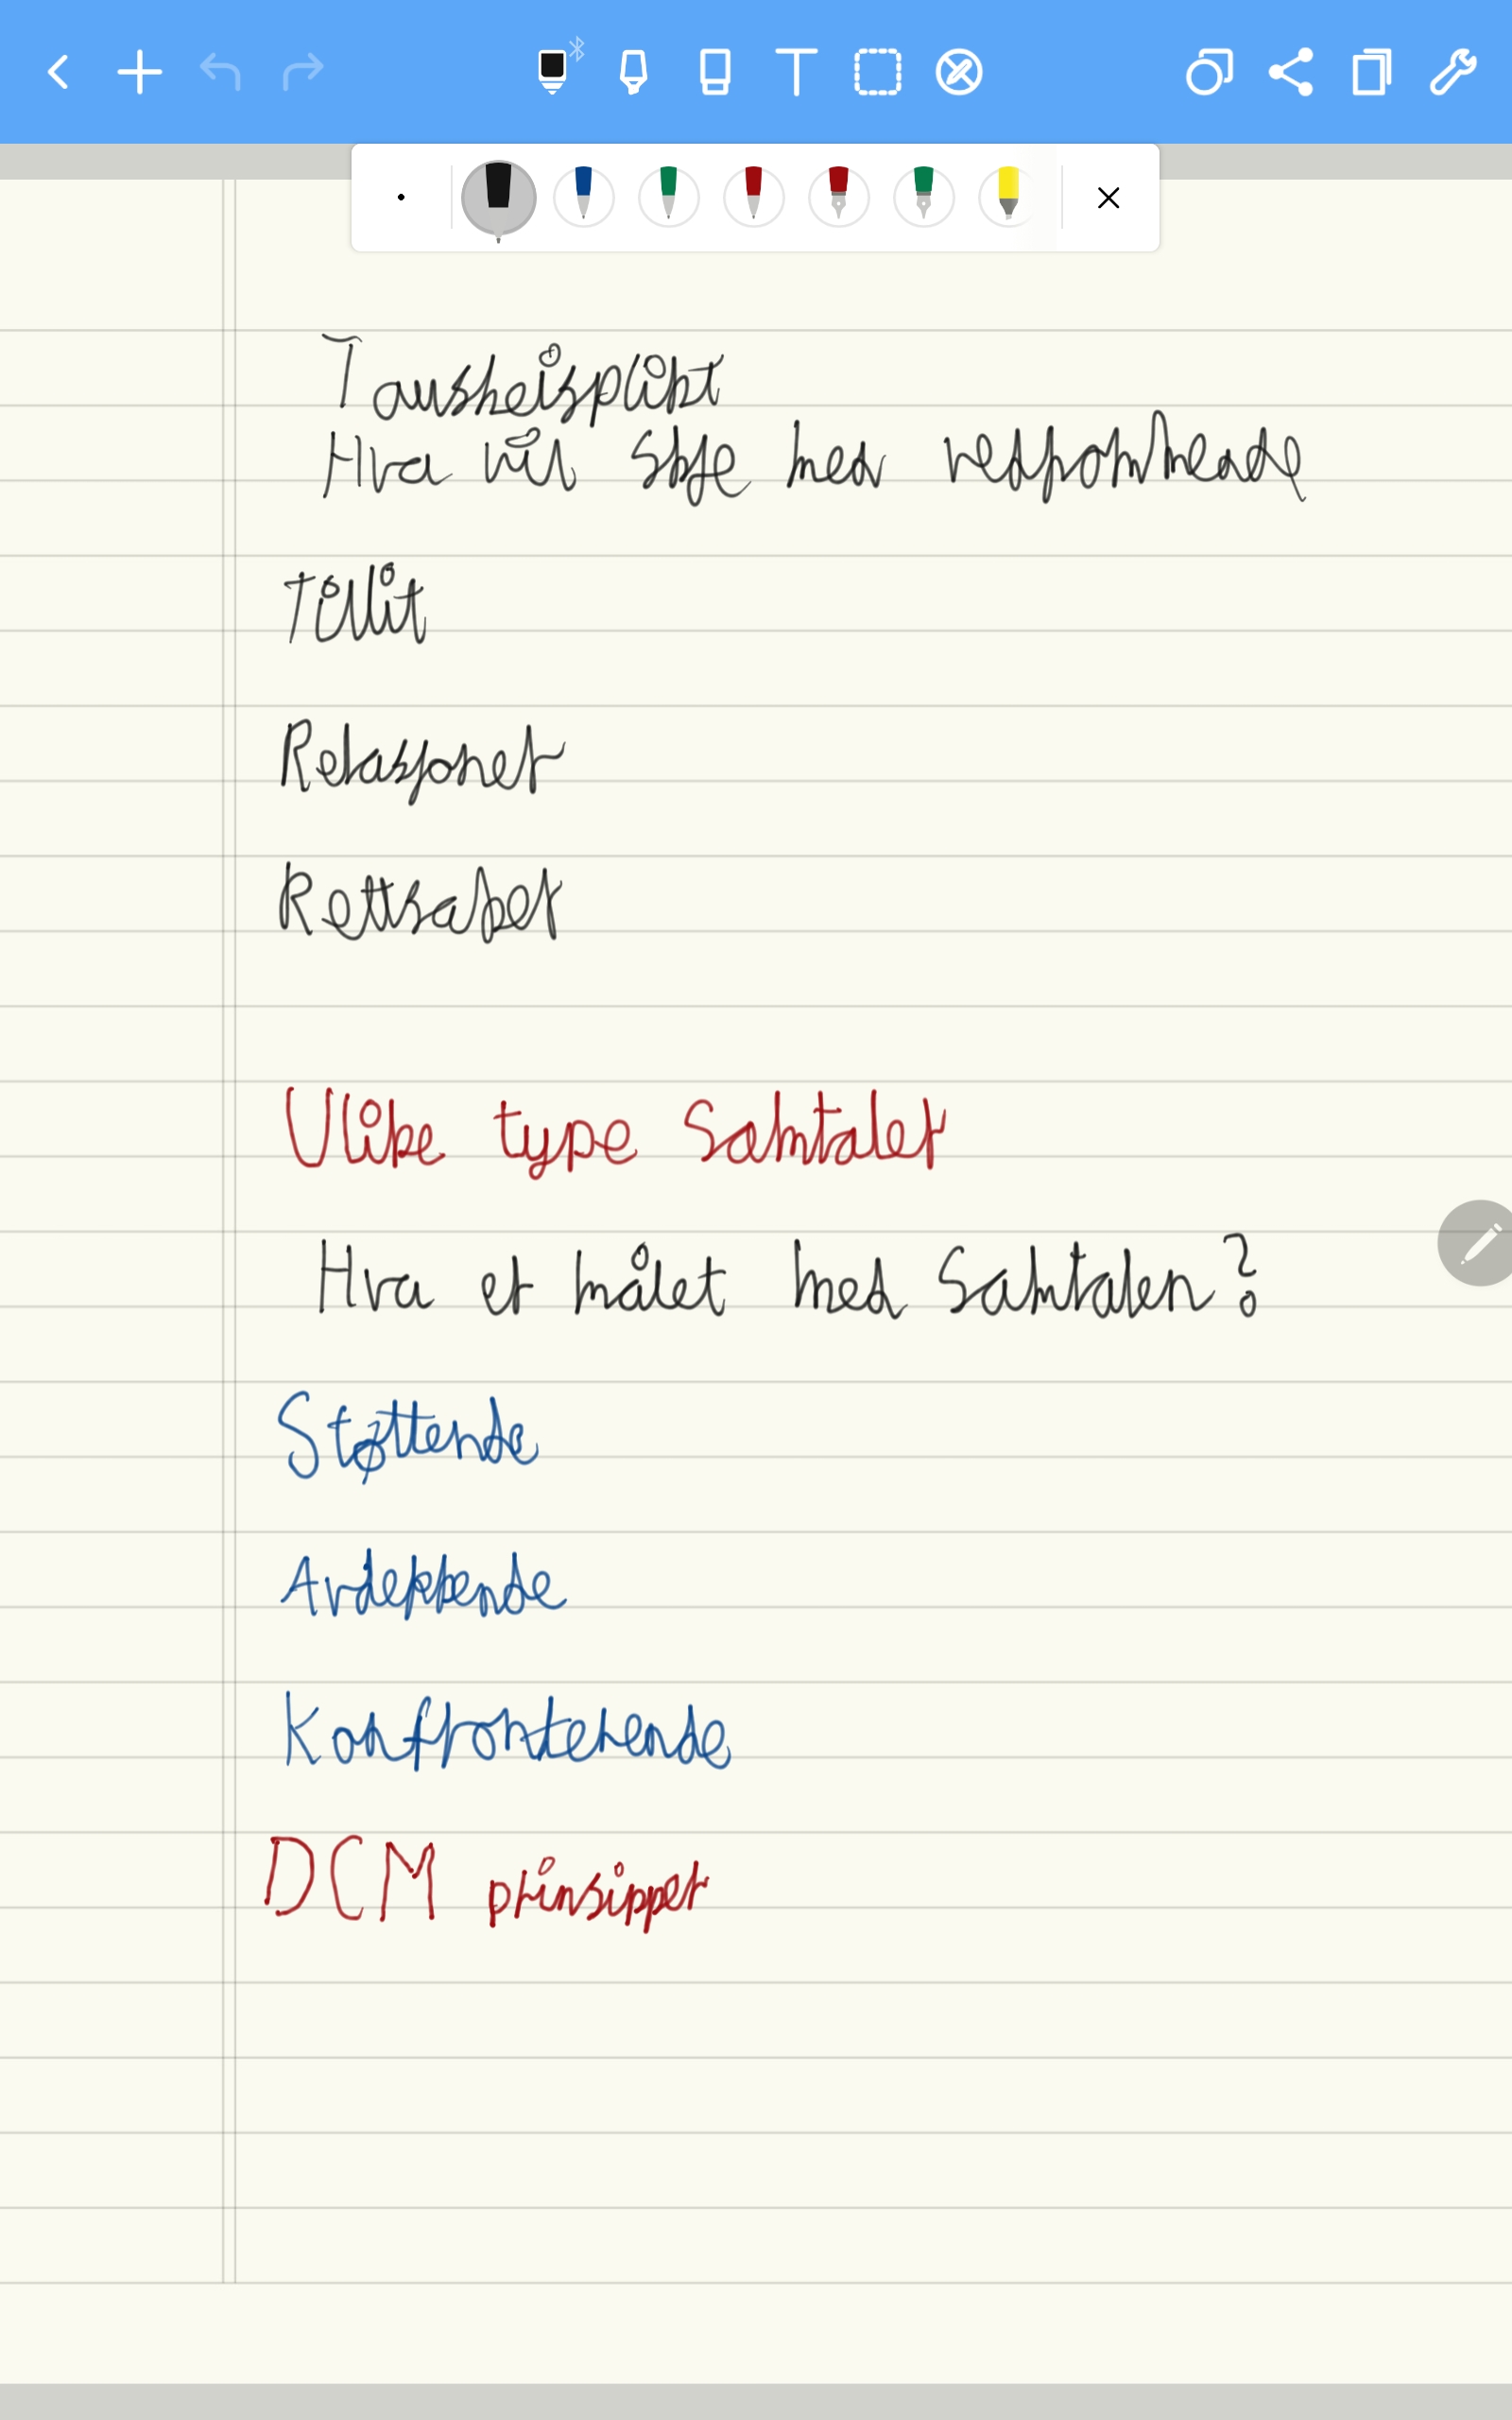 Taushetsplikt
Hva vil skje med
Tillit
Relasjoner
Rettsaker
Ulike type Samtaler
Hva er målet med Samtalen?
Støttende
Avdekkende
Konfronterende
DCM prinsipper